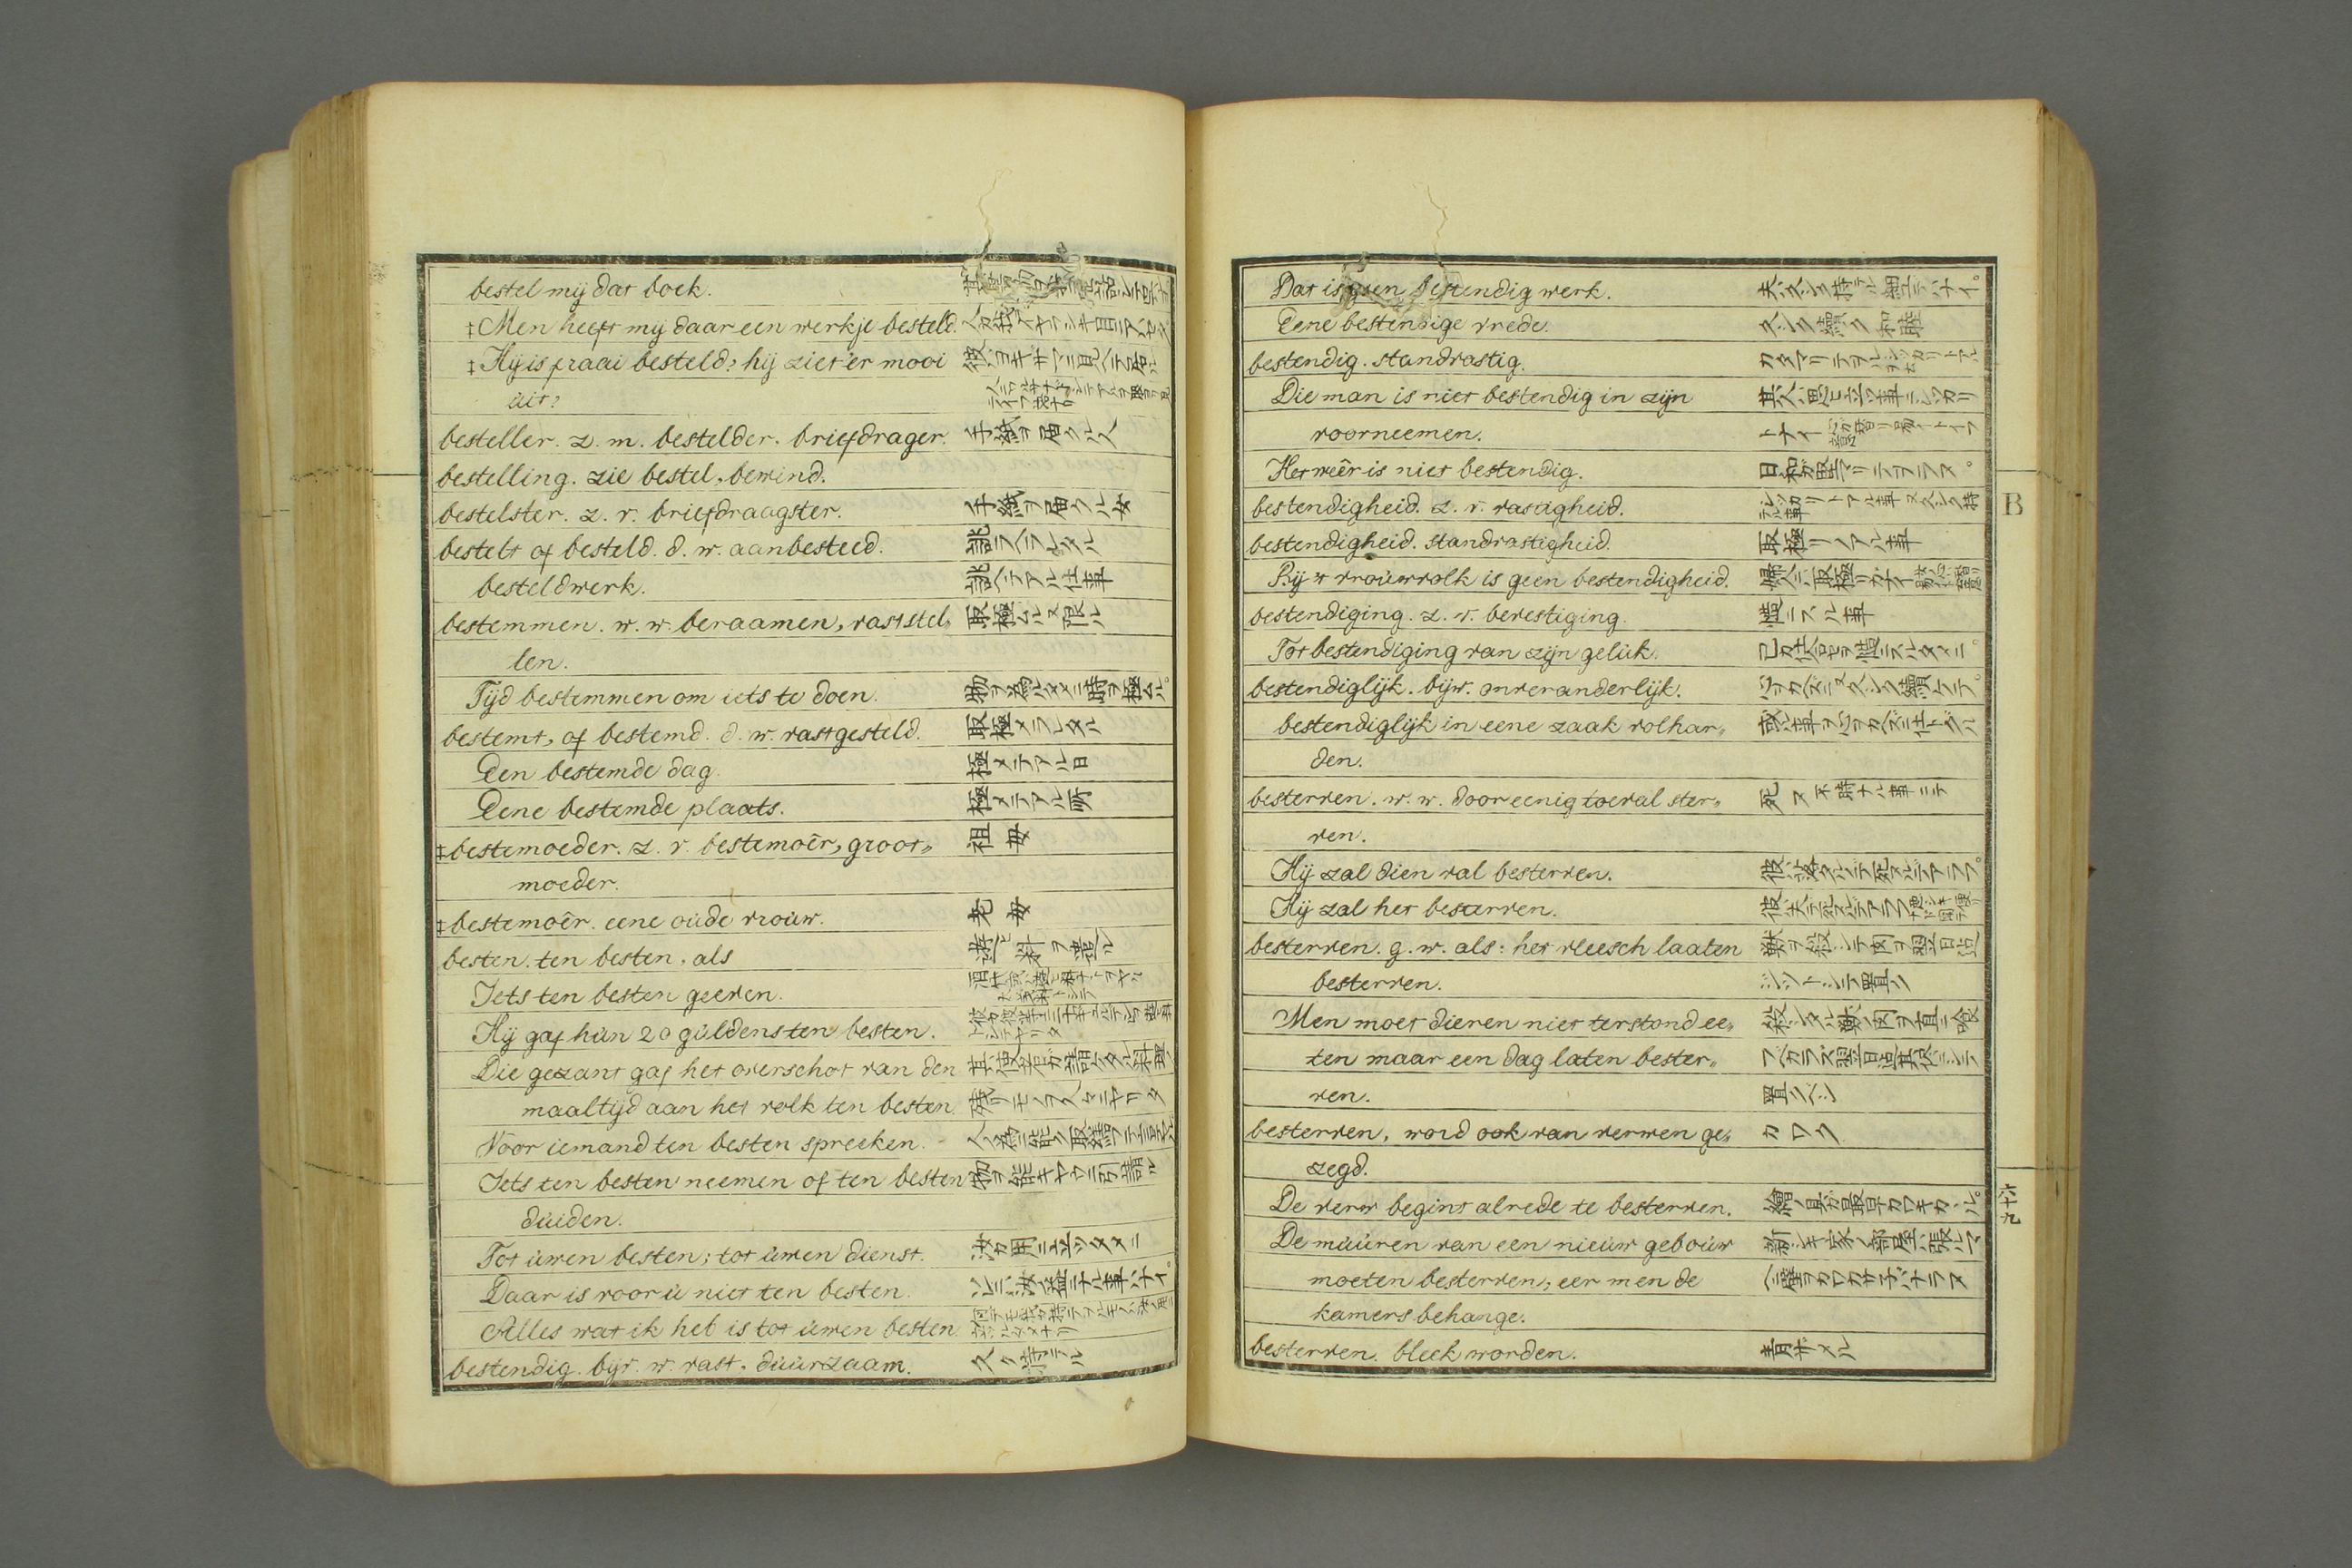 bestel mij dat boek.
‡Men heeft mij daar een werkje besteld.
‡Hij is fraai besteld? hij ziet er mooi 彼ハヨキサマニ見ヘテ居ル
uit?
besteller. z. m. bestelder. briefdrager. 手紙ヲ届クル人
bestelling. zie bestel, bewind.
bestelster. z. v. briefdraagster. 手紙ヲ届クル女
bestelt of besteld. d. w. aanbesteed. 誂ラヘラレタル
besteldwerk. 誂ヘテアル仕事
bestemmen. w. w. beraamen, vaststel„ 取極ムル又限ル
len.
Tijd bestemmen om iets te doen. 物ヲ為ルタメニ時ヲ極ムル。
bestemt, of bestemd. d. w. vastgesteld. 取極メラレタル
Een bestemde dag. 極メテアル日
Eene bestemde plaats. 極メテアル所
‡bestemoeder. z. v. bestemoêr, groot„ 祖母
moeder.
‡bestemoêr. eene oude vrouw. 老母
besten. ten besten. als
Iets ten besten geeven.
Hij gaf hun 20 guldens ten besten.
Die gezant gaf het overschot van den
maaltijd aan het volk ten besten. 残リモノヲ人々ニヤリタ
Voor iemand ten besten spreeken.
Iets ten besten neemen of ten besten 物ヲ能キヤウニ引請ル
duiden.
Tot uwen besten; tot uwen dienst. 汝カ用ニ立ツタメニ
Daar is voor u niet ten besten. ソレニハ汝ノ益ニナル事ハナイ。
Alles wat ik heb is tot uwen besten.
bestendig. bijv. w. vast. duurzaam. 久ク持テル
Dat is geen bestendig werk. 夫ハ久シク持テル細工デハナイ。
Eene bestendige vrede. 久シク續ク和睦
bestendig. standvastig.
Die man is niet bestendig in zijn 其人ハ思ヒ立ツ事ニシツカリ
voorneemen. トナイ
Het weêr is niet bestendig. 日和ガ取守リテヲラヌ。
bestendigheid. z. v. vastigheid.
bestendigheid. standvastigheid. 取極リノアル事
Bij 't vrouwvolk is geen bestendigheid. 婦人ニハ取極リガナイ
bestendiging. z. v. bevestiging. 慥ニスル事
Tot bestendiging van zijn geluk. 己カ仕合セヲ慥ニスルタメニ。
bestendiglijk. bijw. onveranderlijk.
bestendiglijk in eene zaak volhar„
den.
besterven. w. w. door eenig toeval ster„ 死ヌ 不時ナル事ニテ
ven.
Hij zal dien val besterven. 彼ハ落タルニテ死ヌルデアラフ。
Hij zal het besterven.
besterven. g. w. als: het vleesch laaten 獣ヲ殺シテ肉ヲ翌日迠
besterven. ジツトシテ置ク
Men moet dieren niet terstond ee„ 殺シタル獣ノ肉ヲ直ニ喰
ten maar een dag laten bester„ フベカラズ翌日迠其侭ニシテ
ven. 置クベシ
besterven, word ook van verwen ge„ カワク
zegd.
De verw begint alrede te besterven. 繪ノ具ガ最早カワキカヽル。
De muuren van een nieuw gebouw 新シキ家ノ部屋ハ張ルマ
moeten besterven, eer men de ヘニ壁ヲカワカサ子バナラヌ
kamers behange.
besterven. bleek worden. 青ザメル
B